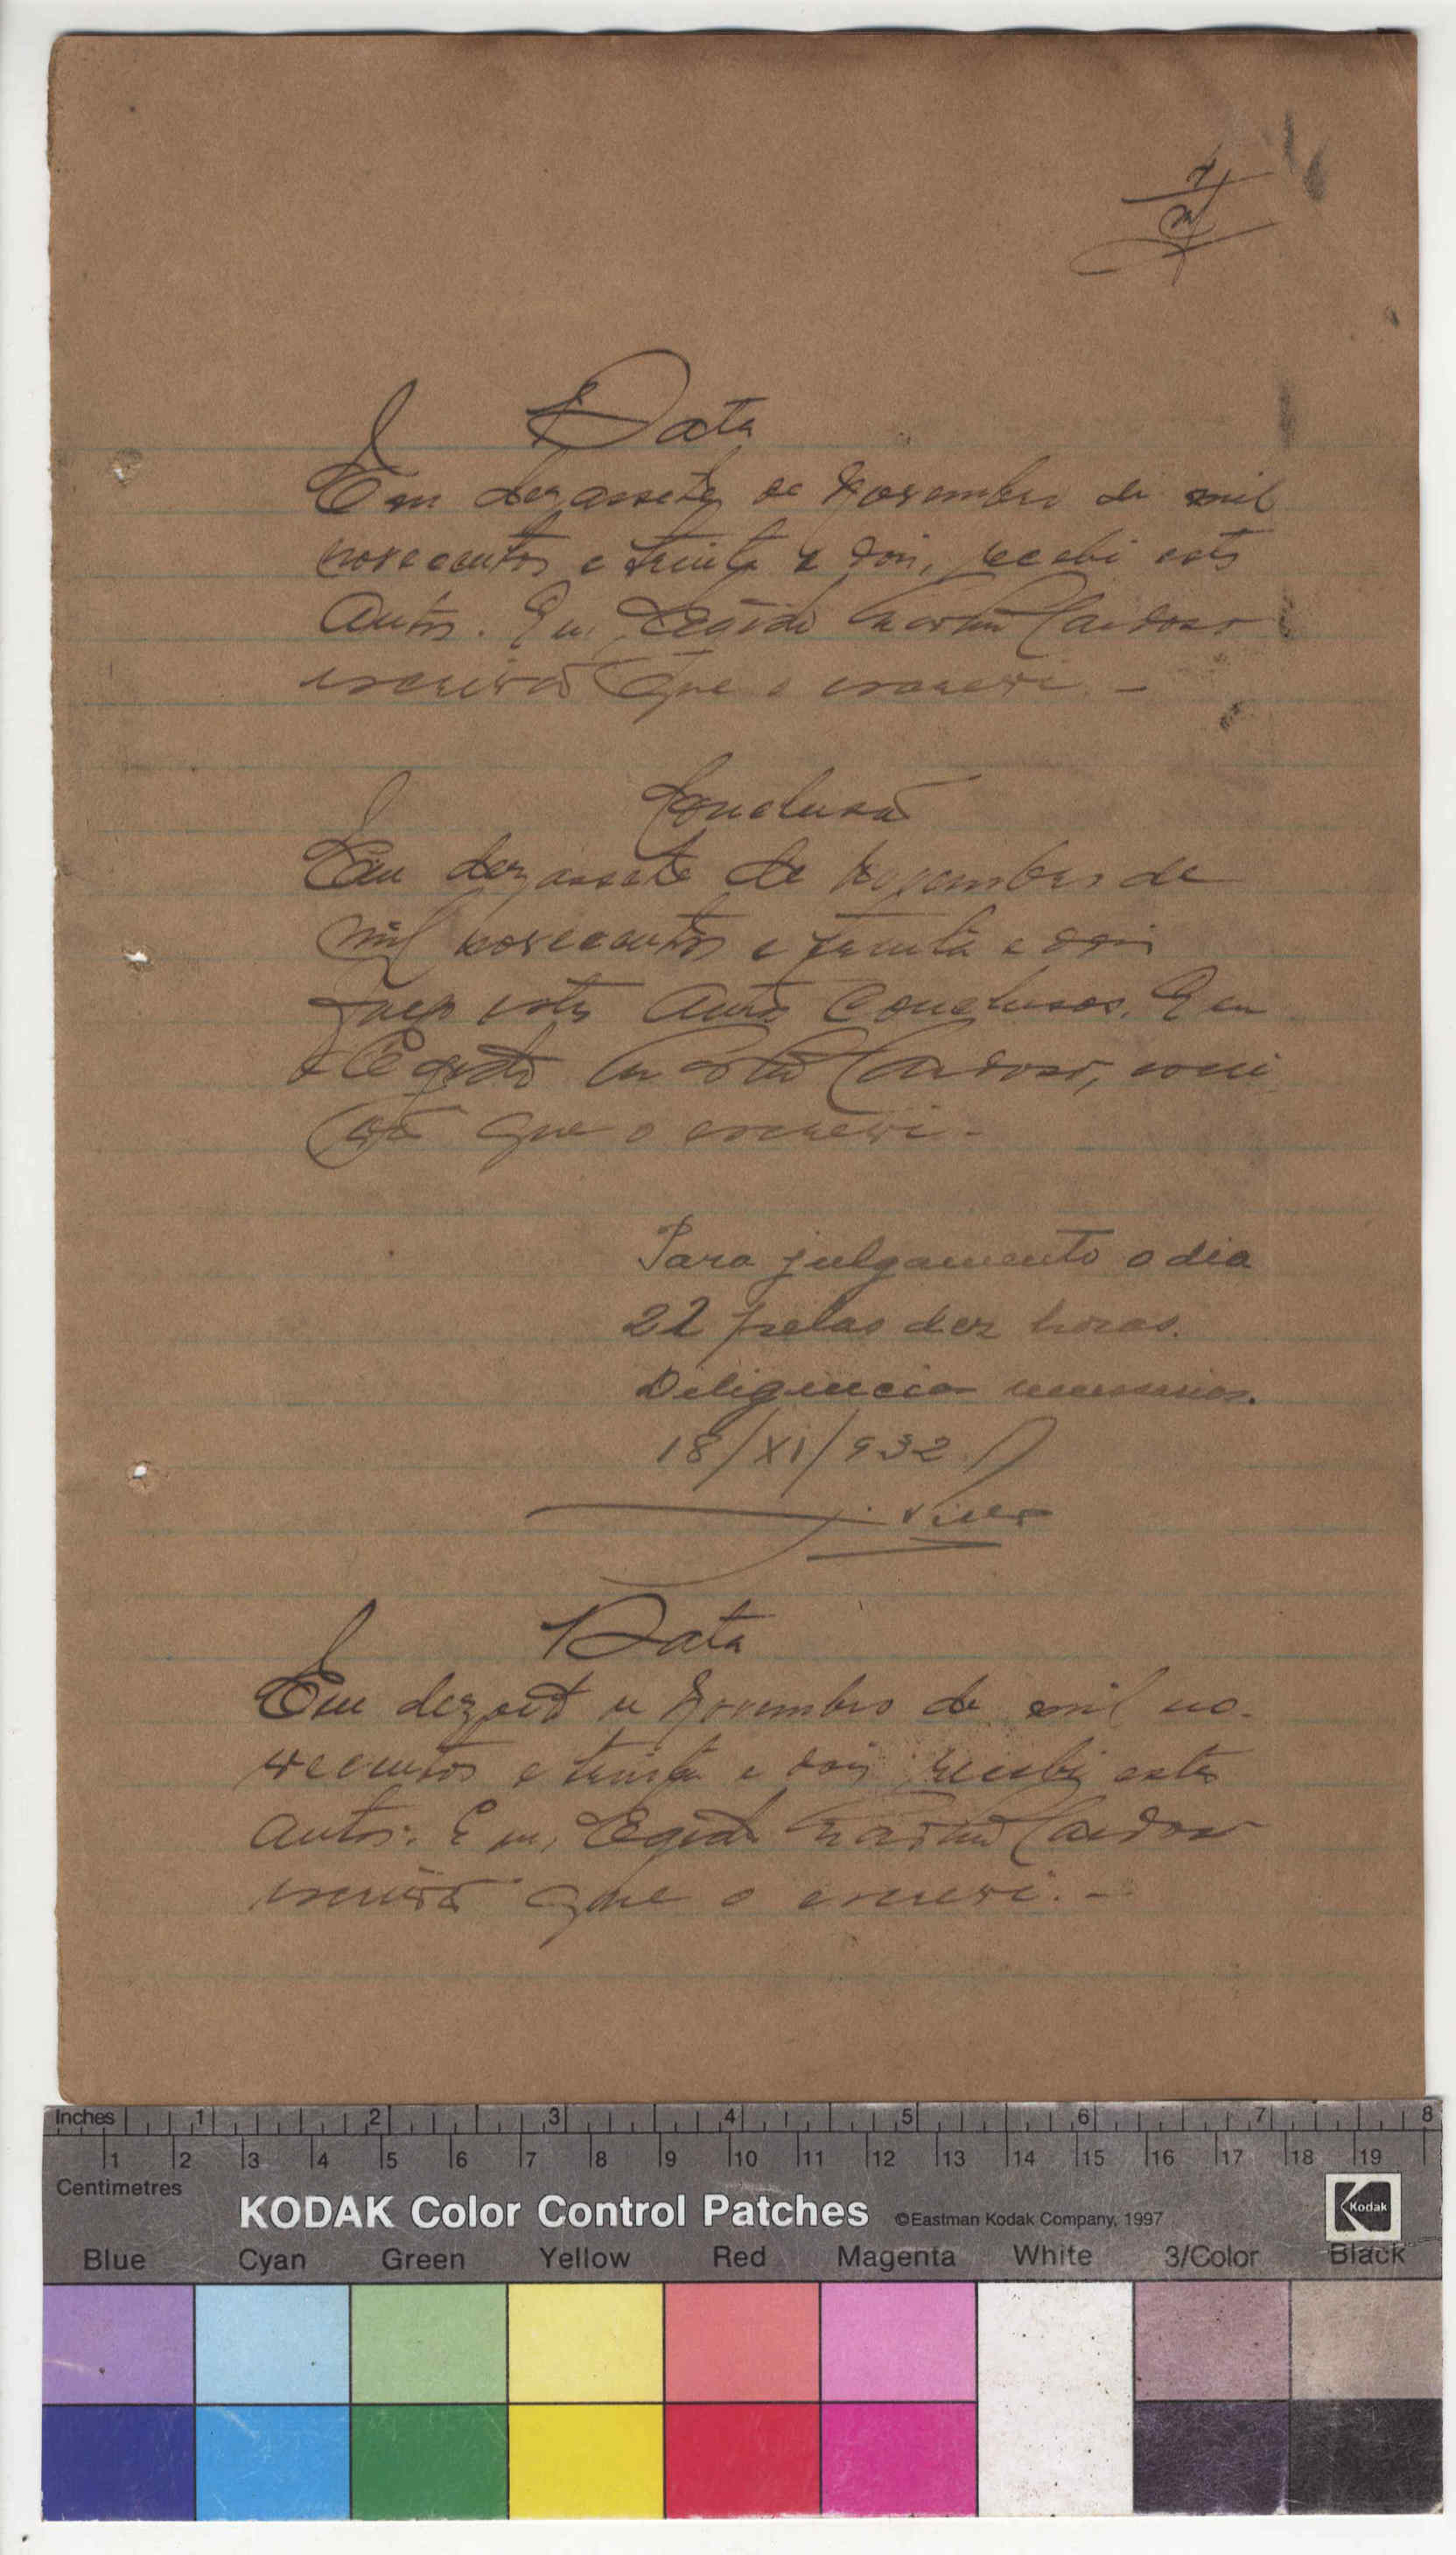 Data
Em dezassete de Novembro de mil
novecentos e trinta e dois, recebi estes
autos. Eu, Egidio Cardoso
escrivão que o escrevi. -
Conclusão
Em dezassete de Novembro de
mil novecentos e trinta e dois
faço estes autos conclusos. Eu
Egidio Cardoso, escri
vão que o escrevi -
Para julgamento o dia
22 pelas dez horas.
Diligencias necessarias.
18/XI/932
Data
Em dezoito de Novembro de mil no-
vecentos e trinta e dois recebi estes
autos. Eu, Egidio Cardoso
escrivão que o escrevi. -
Inches 1 2 3 4 5 6 7 8
1 2 3 4 5 6 7 8 9 10 11 12 13 14 15 16 17 18 19
Centimetres
KODAK Color Control Patches ©Eastman Kodak Company, 1997 Kodak
Blue Cyan Green Yellow Red Magenta White 3/Color Black